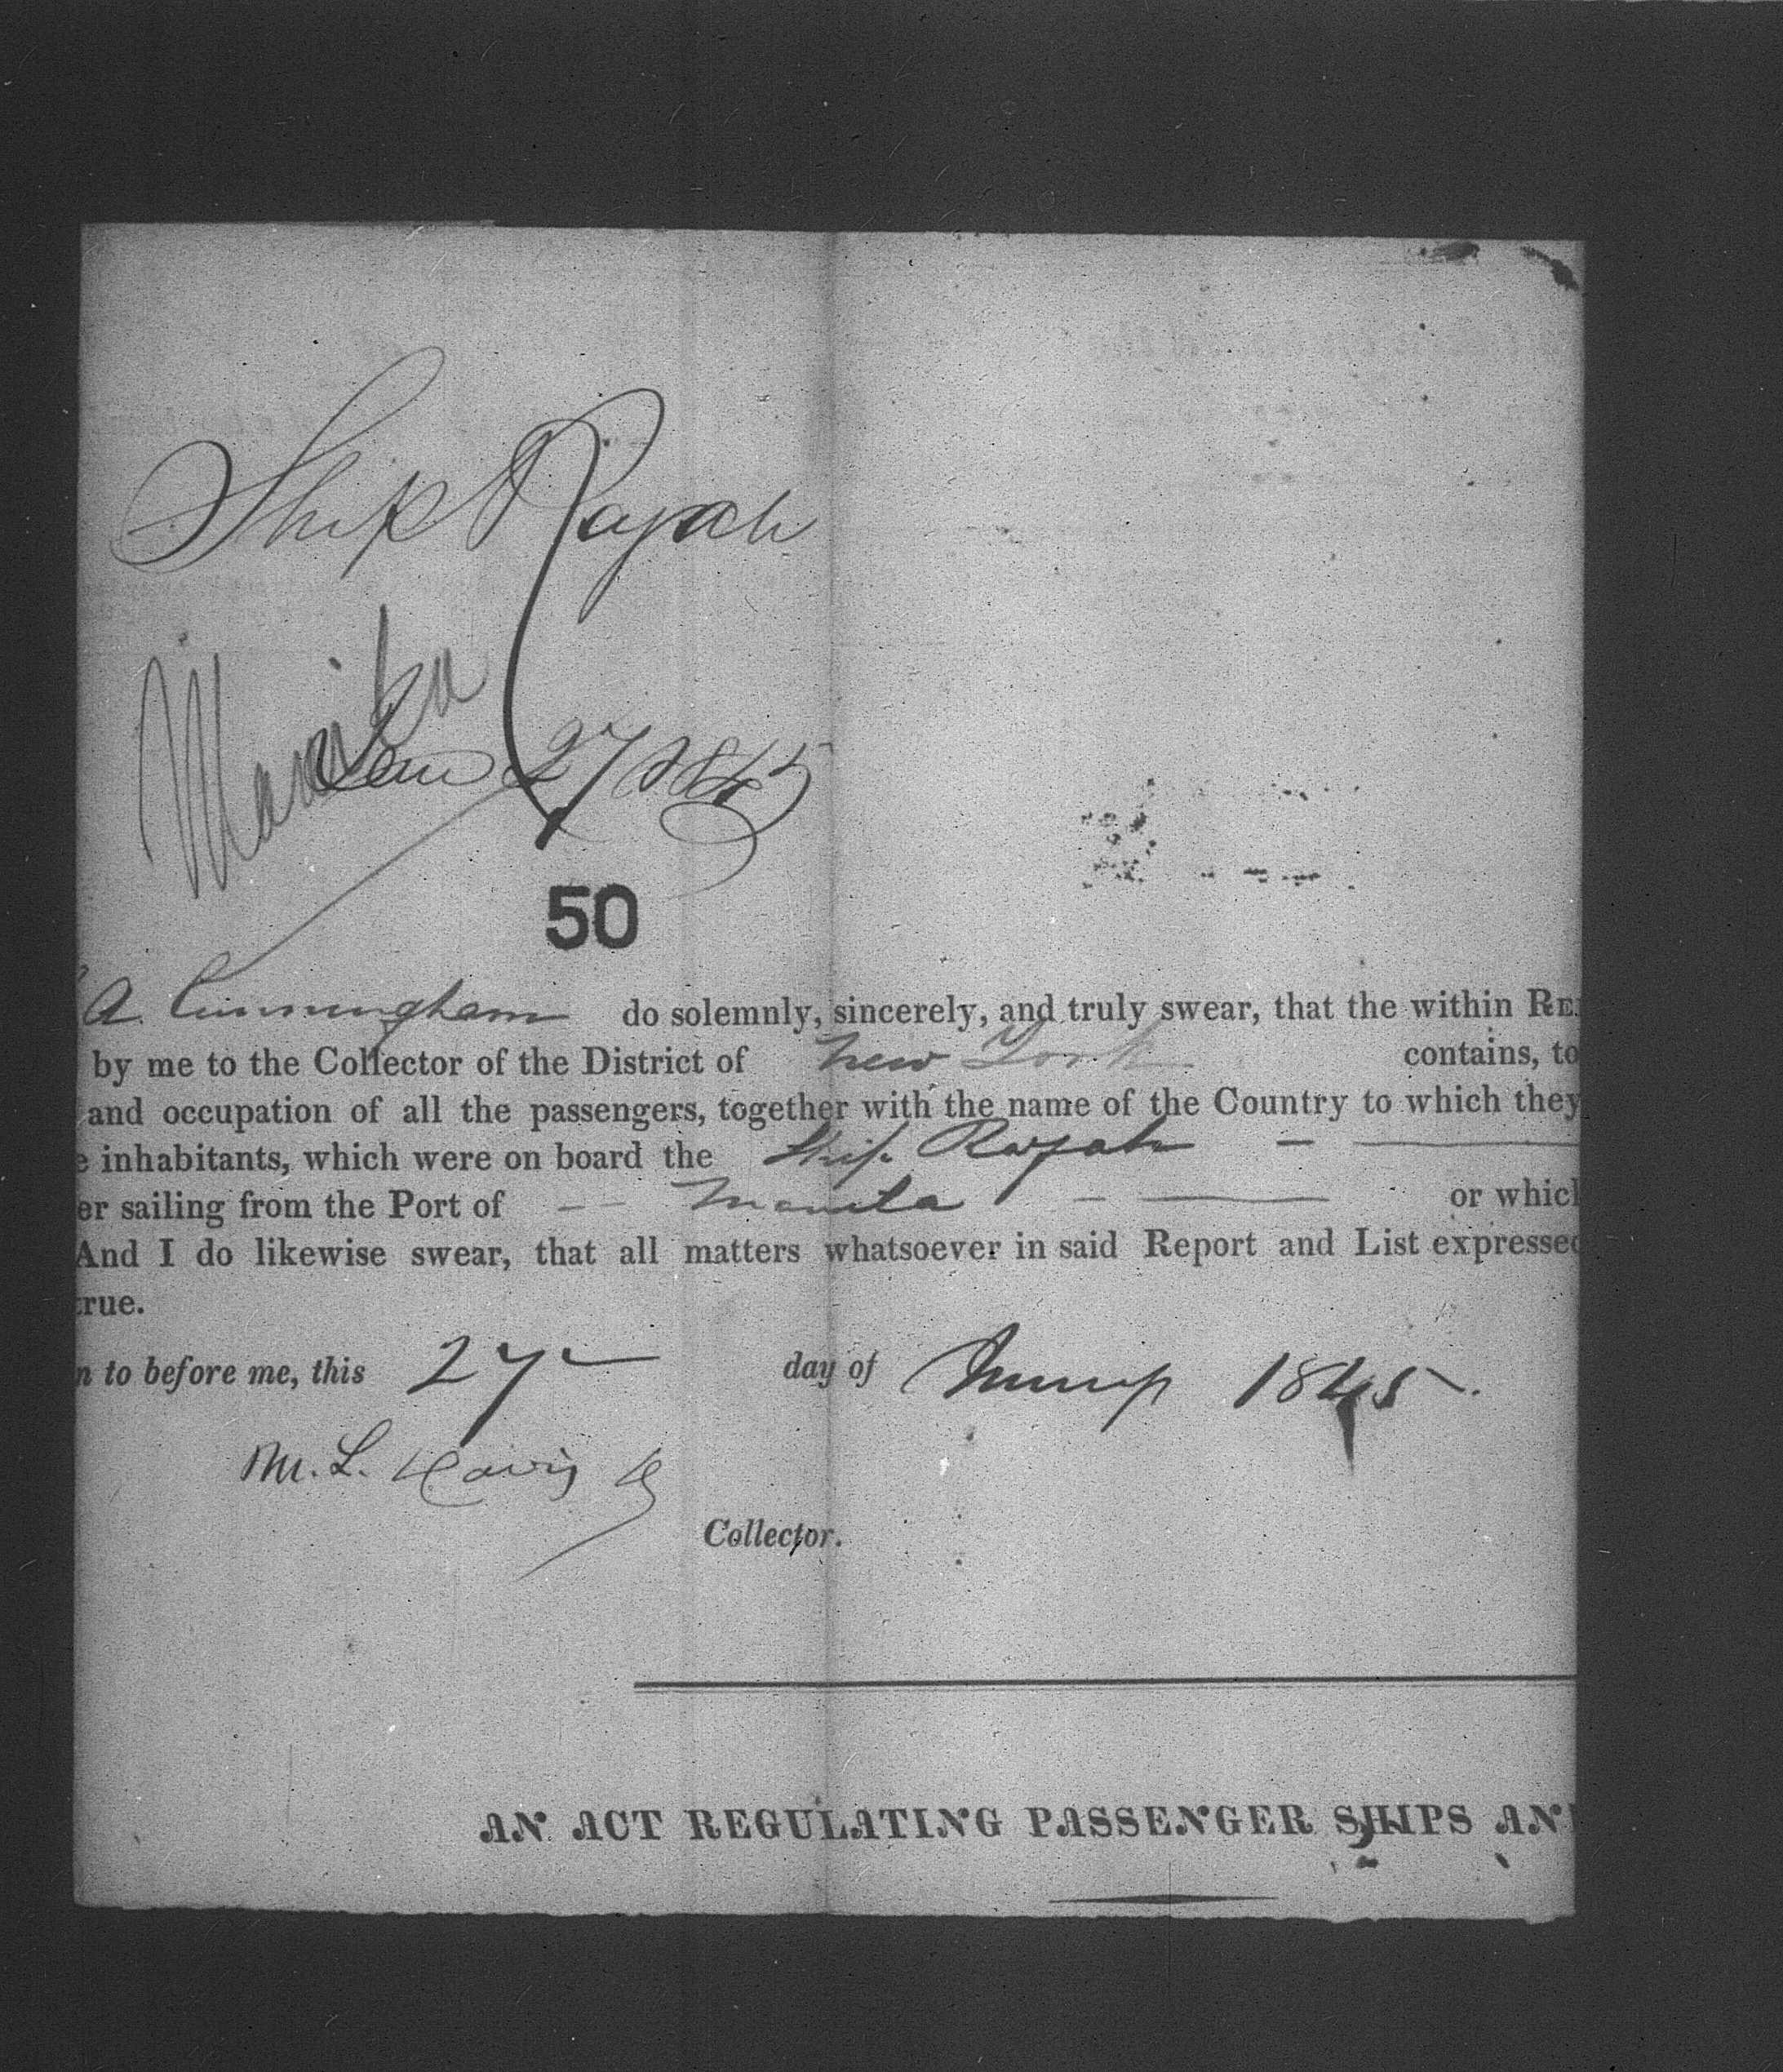 Ship Rajah
Manila
Jan 27 1845
50
A. Cunningham do solemnly, sincerely, and truly swear, that the within RE
by me to the Collector of the District of New York contains, to
and occupation of all the passengers, together with the name of the Country to which they
e inhabitants, which were on board the Ship Rajah
er sailing from the Port of Manila or which
And I do likewise swear, that all matters whatsoever in said Report and List expressed
true.
n to before me, this 27 day of January 1845.
M. L. Davis
Collector.
AN ACT REGULATING PASSENGER SHIPS AN